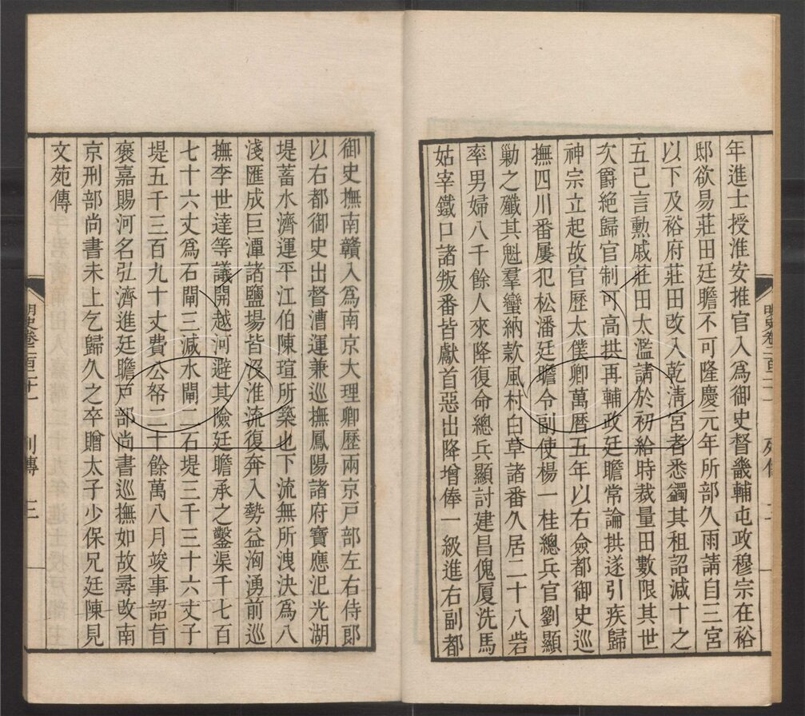 年進士授淮安推官入爲御史督畿輔屯政穆宗在裕
邸欲易莊田廷瞻不可隆慶元年所部久雨請自三宮
以下及裕府莊田改入乾清宮者悉蠲其租詔減十之
五已言勲戚莊田太濫請於初給時裁量田數限其世
次爵絕歸官制可高拱再輔政廷瞻常論拱遂引疾歸
神宗立起故官歷太僕卿萬曆五年以右僉都御史巡
撫四川番屢犯松潘廷瞻令副使楊一桂總兵官劉顯
勦之殲其魁羣蠻納款風村白草諸番久居二十八砦
率男婦八千餘人來降復命總兵顯討建昌傀厦洗馬
姑宰鐵口諸叛番皆獻首惡出降增俸一級進右副都
御史撫南贛入爲南京大理卿歷兩京戸部左右侍郎
以右都御史出督漕運兼巡撫鳳陽諸府寶應氾光湖
堤蓄水濟運平江伯陳瑄所築也下流無所洩決爲八
淺匯成巨潭諸鹽場皆沒淮流復奔入勢益洶湧前巡
撫李世達等議開越河避其險廷瞻承之鑿渠千七百
七十六丈爲石閘三減水閘二石堤三千三十六丈子
堤五千三百九十丈費公帑二十餘萬八月竣事詔旨
褒嘉賜河名弘濟進廷瞻戸部尚書巡撫如故尋改南
京刑部尚書未上乞歸久之卒贈太子少保兄廷陳見
文苑傳
明史卷二百二十一
列傳
三